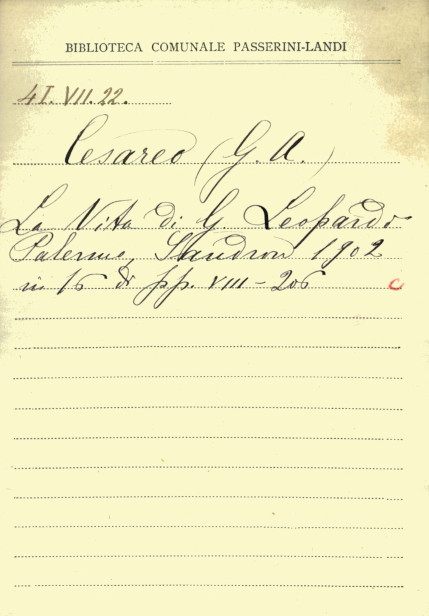 BIBLIOTECA COMUNALE PASSERINI-LANDI
4I.VII.22.
Cesareo (G. A.)
La Vita di G. Leopardi
Palermo, Sandron 1902
in 16 di pp. VIII - 206 C